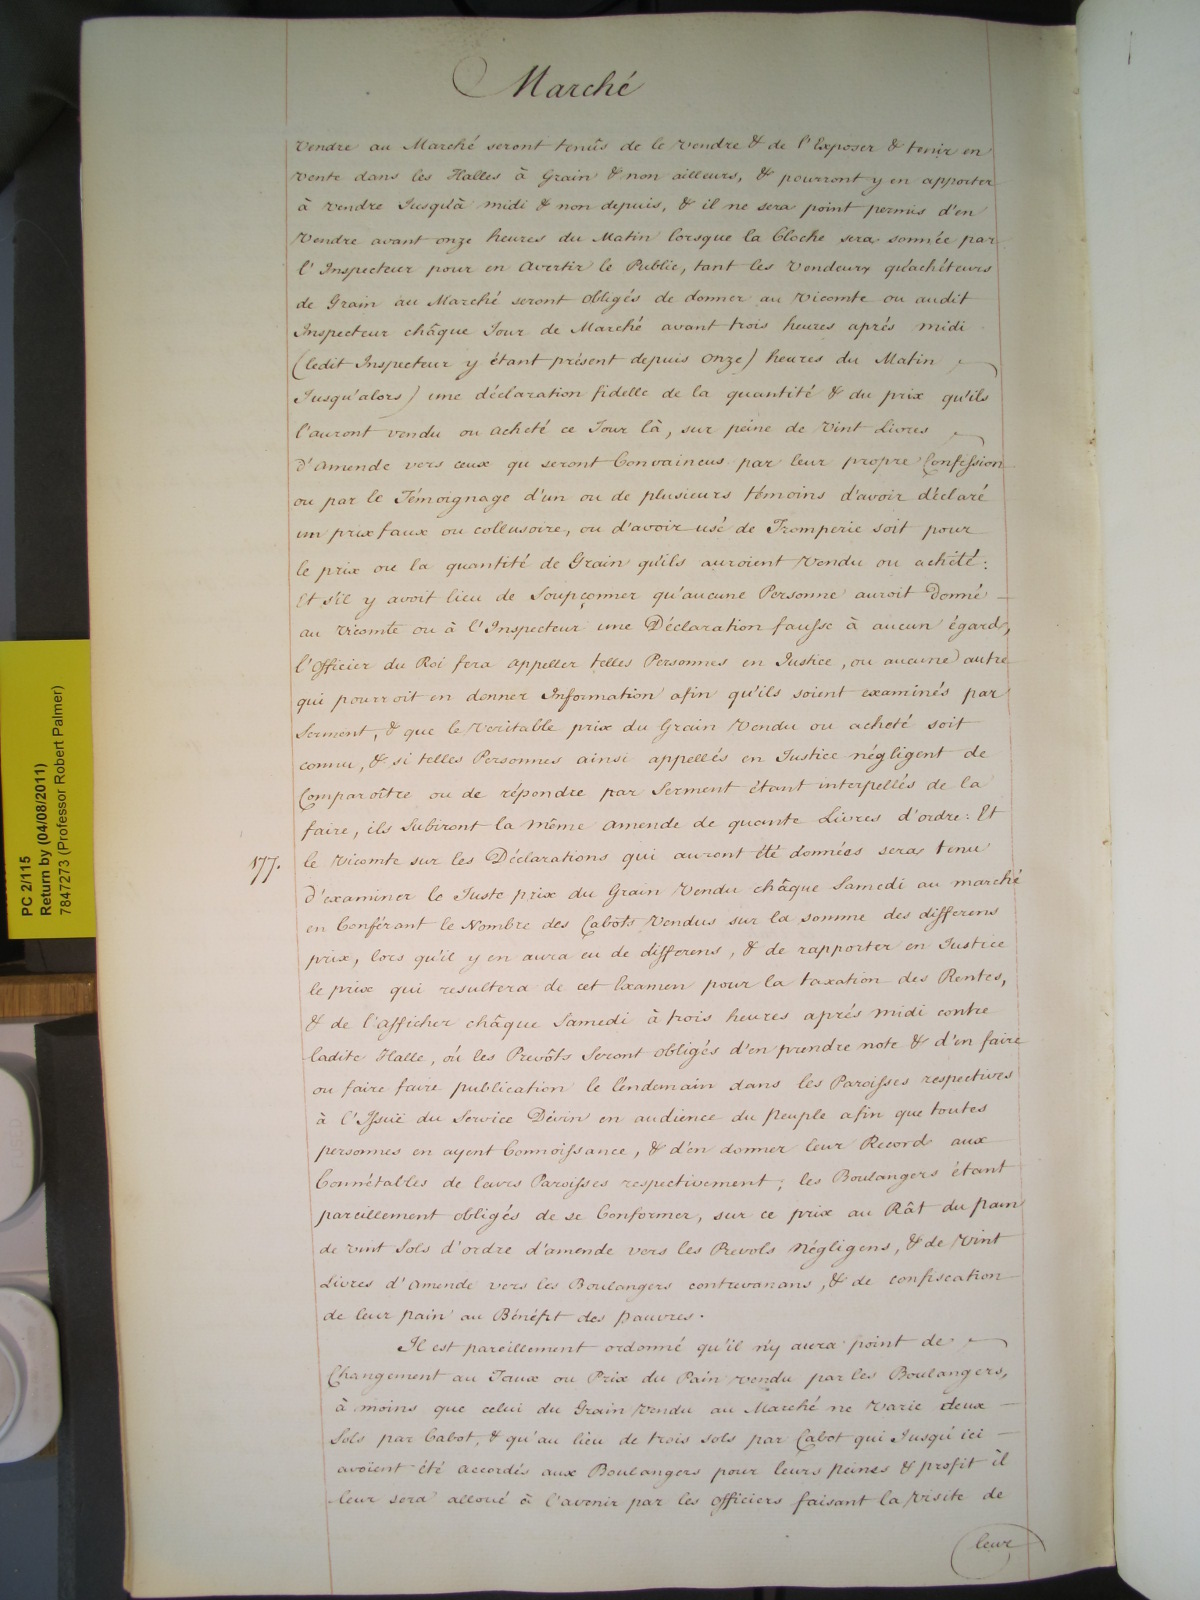 Marché
vendre au Marché seront tenûs de le vendre & de l'Exposer & tenir en
vente dans les Halles à Grain & non ailleurs, & pourront y en apporter
à vendre Jusqu'à midi & non depuis, & il ne sera point permis d'en
Vendre avant onze heures du Matin lorsque la Cloche sera sonnée par
l'Inspecteur pour en Avertir le Public, tant les Vendeurs qu'achéteurs
de Grain au Marché seront obligés de donner au Vicomte ou audit
Inspecteur châque Jour de Marché avant trois heures aprés midi
(ledit Inspecteur y étant présent depuis onze) heures du Matin
Jusqu'alors) une déclaration fidelle de la quantité & du prix qu'ils
l'auront vendu ou acheté ce Jour là, sur peine de Vint Livres
d'Amende vers ceux qu seront Convaincus par leur propre Confession
ou par le Témoignage d'un ou de plusieurs témoins d'avoir déclaré
un prix faux ou collusoire, ou d'avoir usé de Tromperie soit pour
le prix ou la quantité de Grain qu'ils auroient Vendu ou acheté:
Et s'il y avoit lieu de Soupçonner qu'aucune Personne auroit Donné
au Vicomte ou à l'Inspecteur une Déclaration fausse à aucun égard,
l'Officier du Roi fera appeller telles Personnes en Justice, ou aucune autre
qui pourroit en donner Information afin qu'ils soient examinés par
Serment, & que le Veritable prix du Grain Vendu ou acheté soit
connu, & si telles Personnes ainsi appellés en Justice négligent de
Comparoître ou de répondre par Serment étant interpellés de la
faire, ils Subiront la même Amende de quante Livres d'ordre: Et
177. le Vicomte sur les Déclarations qui auront été données sera tenu
d'examiner le Juste prix du Grain Vendu châque Samedi au marché
en Conférant le Nombre des Cabots Vendus sur la somme des differens
prix, lors qu'il y en aura eu de differens, & de rapporter en Justice
le prix qui resultera de cet Examen pour la taxation des Rentes,
& de l'afficher châque Samedi à trois heures aprés midi contre
ladite Halle, où les Prevôts Seront obligés d'en prendre note & d'en faire
ou faire faire publication le lendemain dans les Paroisses respectives
à l'Issuë du Service Divin en audience du Peuple afin que toutes
personnes en ayent Connoissance, & d'en donner leur Record aux
Connétables de leurs Paroisses respectivement; les Boulangers étant
pareillement obligés de se Conformer, sur ce prix au Rât du pain
de vint Sols d'ordre d'amende vers les Prevots Négligens, & de Vint
Livres d'Amende vers les Boulangers contrevanans, & de confiscation
de leur pain au Bénéfit des pauvres.
Il est pareillement ordonné qu'il n'y aura point de
Changement au Taux ou Prix du Pain vendu par les Boulangers,
à moins que celui du Grain Vendu au Marché ne Varie deux
Sols par Cabot, & qu'au lieu de trois sols par Cabot qui Jusqu'ici
avoient été accordés aux Boulangers pour leurs peines & profit il
leur sera alloué à l'avenir par les Officiers faisant la Visite de
leur
PC 2/115
Return by (04/08/2011)
7847273 (Professor Robert Palmer)